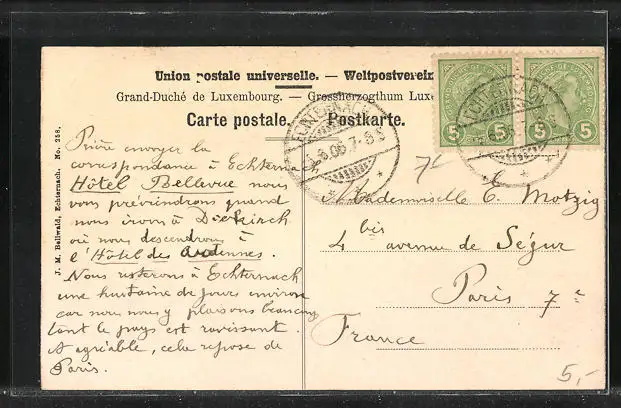 Union postale universelle. — Weltpostverein
Grand-Duché de Luxembourg. — Grossherzogthum Luxe
Carte postale. Postkarte.
J. M. Bellwald, Echternach. No. 258.
Prière envoyer la
correspondance à Echternach
Hôtel Bellevue nous
vous préviendrons quand
nous irons à Diekirch
où nous descendrons à
l'Hôtel des Ardennes.
Nous resterons à Echternach
une huitaine de jours environ
car nous nous y plaisons beaucoup
tant le pays est ravissant.
et agréable, cela repose de
Paris.
ECHTERNACH
6.06 7-8 S
ECHTERNACH
5 5 5 5
Mademoiselle E. Motzig
4 bis avenue de Ségur
Paris 7e
France
5,-